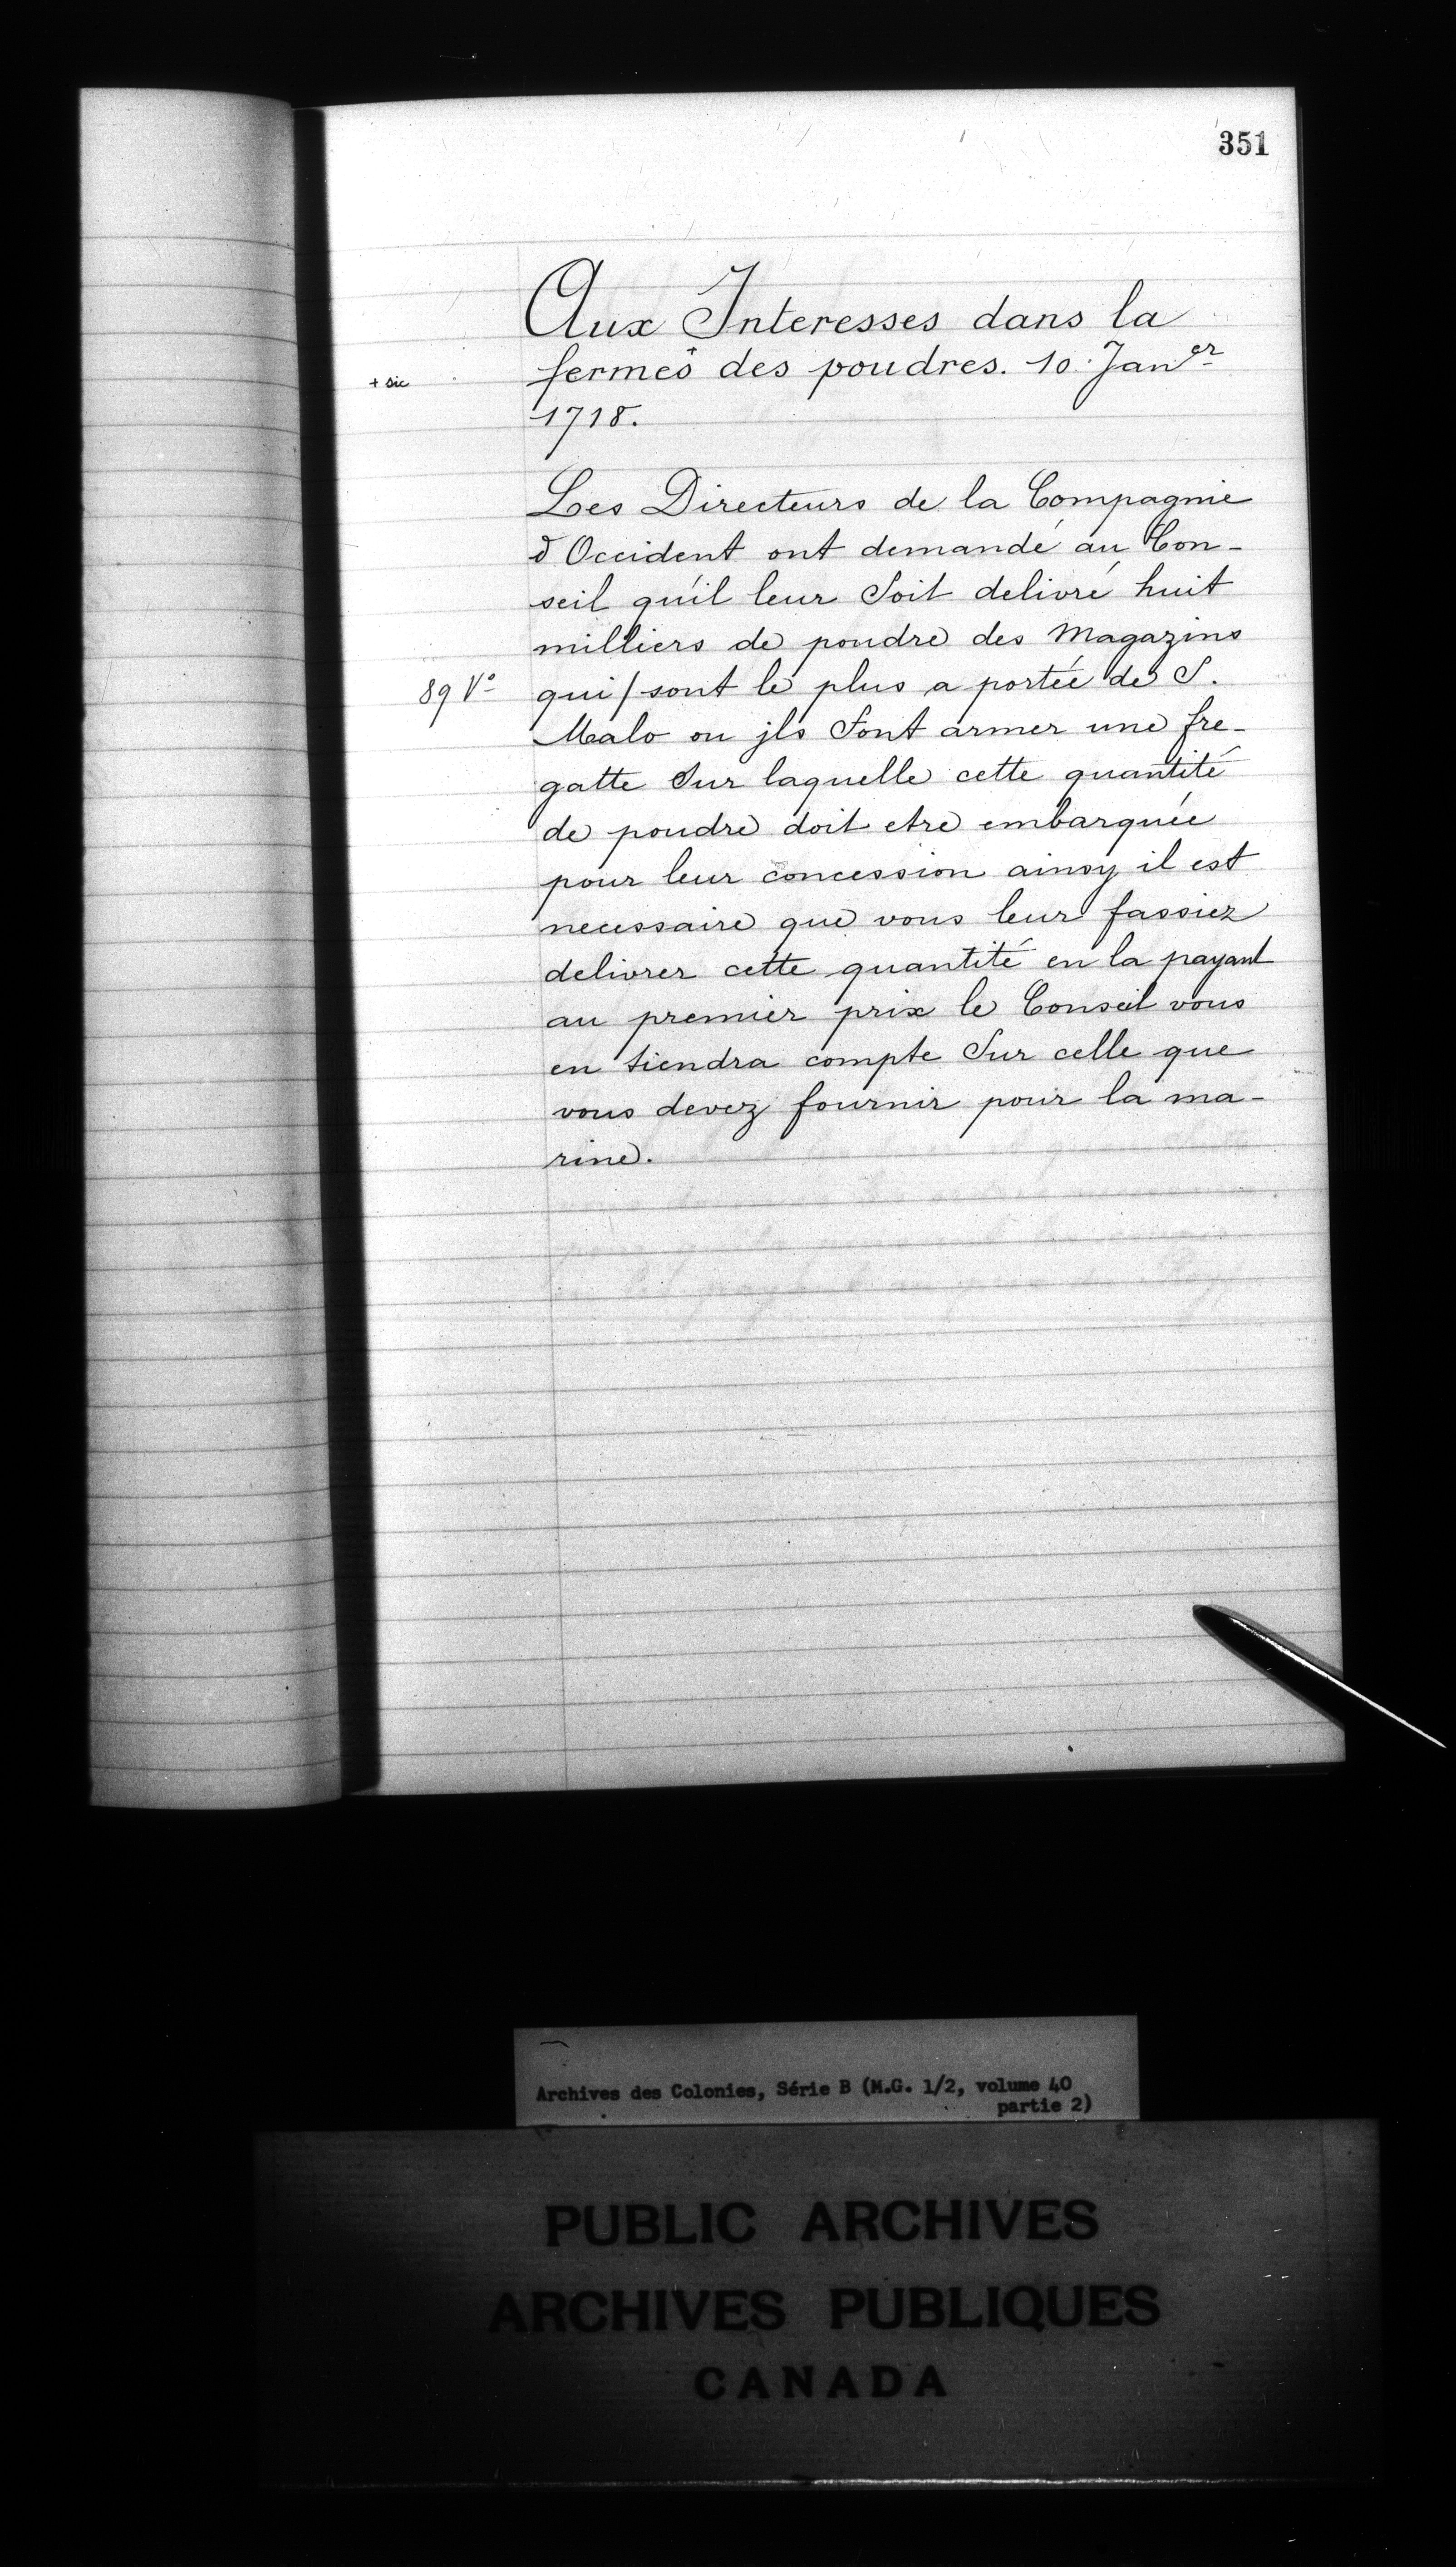 351
Aux Interesses dans la
fermes+ des poudres. 10 Jan^er
+ sic
1718.
Les Directeurs de la Compagnie
d'Occident ont demandé au Con-
seil qu'il leur Soit delivré huit
milliers de poudre des Magazins
89 V°
qui / sont le plus a portée de S.
Malo ou jls Font armer une fre-
gatte Sur laquelle cette quantité
de poudre doit etre embarquée
pour leur concession ainsy il est
necessaire que vous leur fassiez
delivrer cette quantité en la payant
au premier prix le Conseil vous
en tiendra compte Sur celle que
vous devez fournir pour la ma-
rine.
Archives des Colonies, Série B (M.G. 1/2, volume 40
partie 2)
PUBLIC ARCHIVES
ARCHIVES PUBLIQUES
CANADA